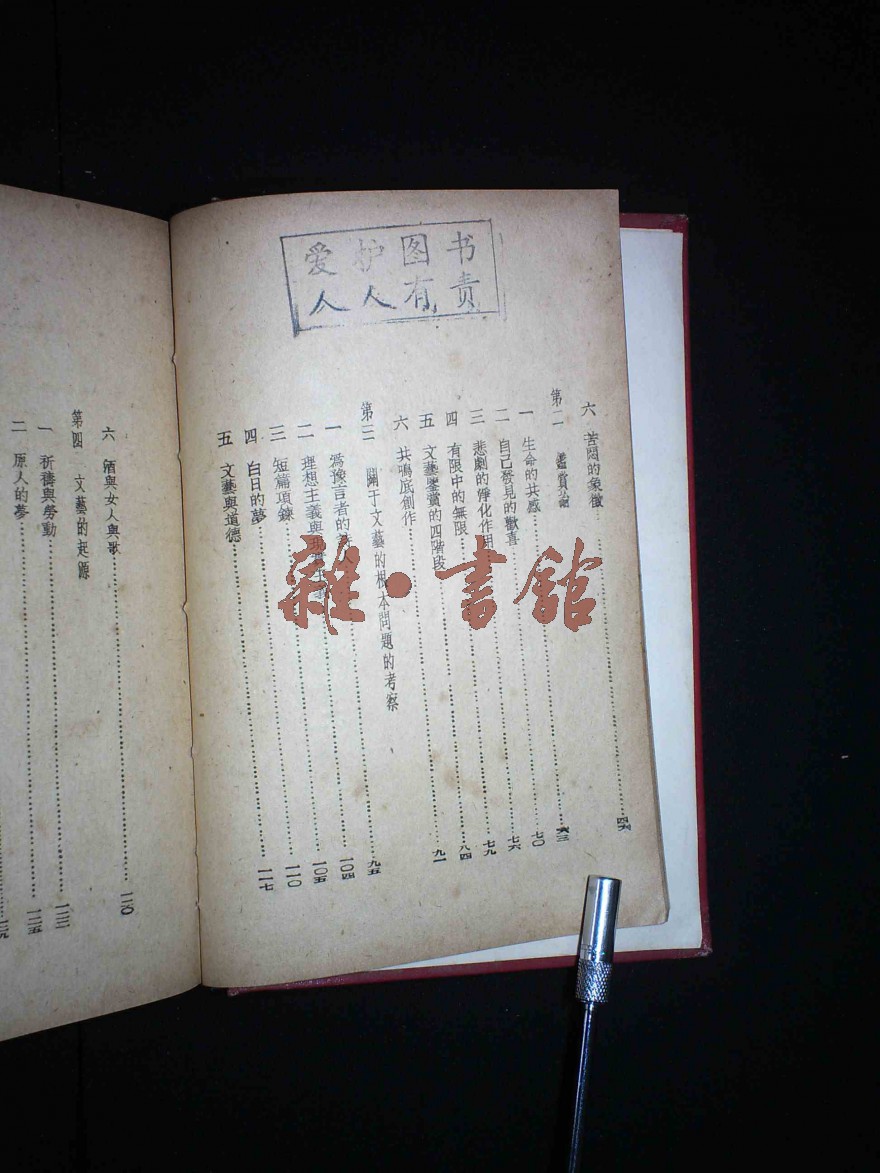 爱护图书
人人有责
六 苦悶的象徵
第二 鑑賞論 六三
一 生命的共感 七〇
二 自己發見的歡喜 七六
三 悲劇的淨化作用 七九
四 有限中的無限 八四
五 文藝鑒賞的四階段 九一
六 共鳴底創作
第三 關于文藝的根本問題的考察 九五
一 爲豫言者的 一〇四
二 理想主義與現 一〇五
三 短篇項鍊 一一〇
四 白日的夢 一一七
五 文藝與道德
六 酒與女人與歌 一二〇
第四 文藝的起源
一 祈禱與勞動
二 原人的夢 一二五
雜·書館